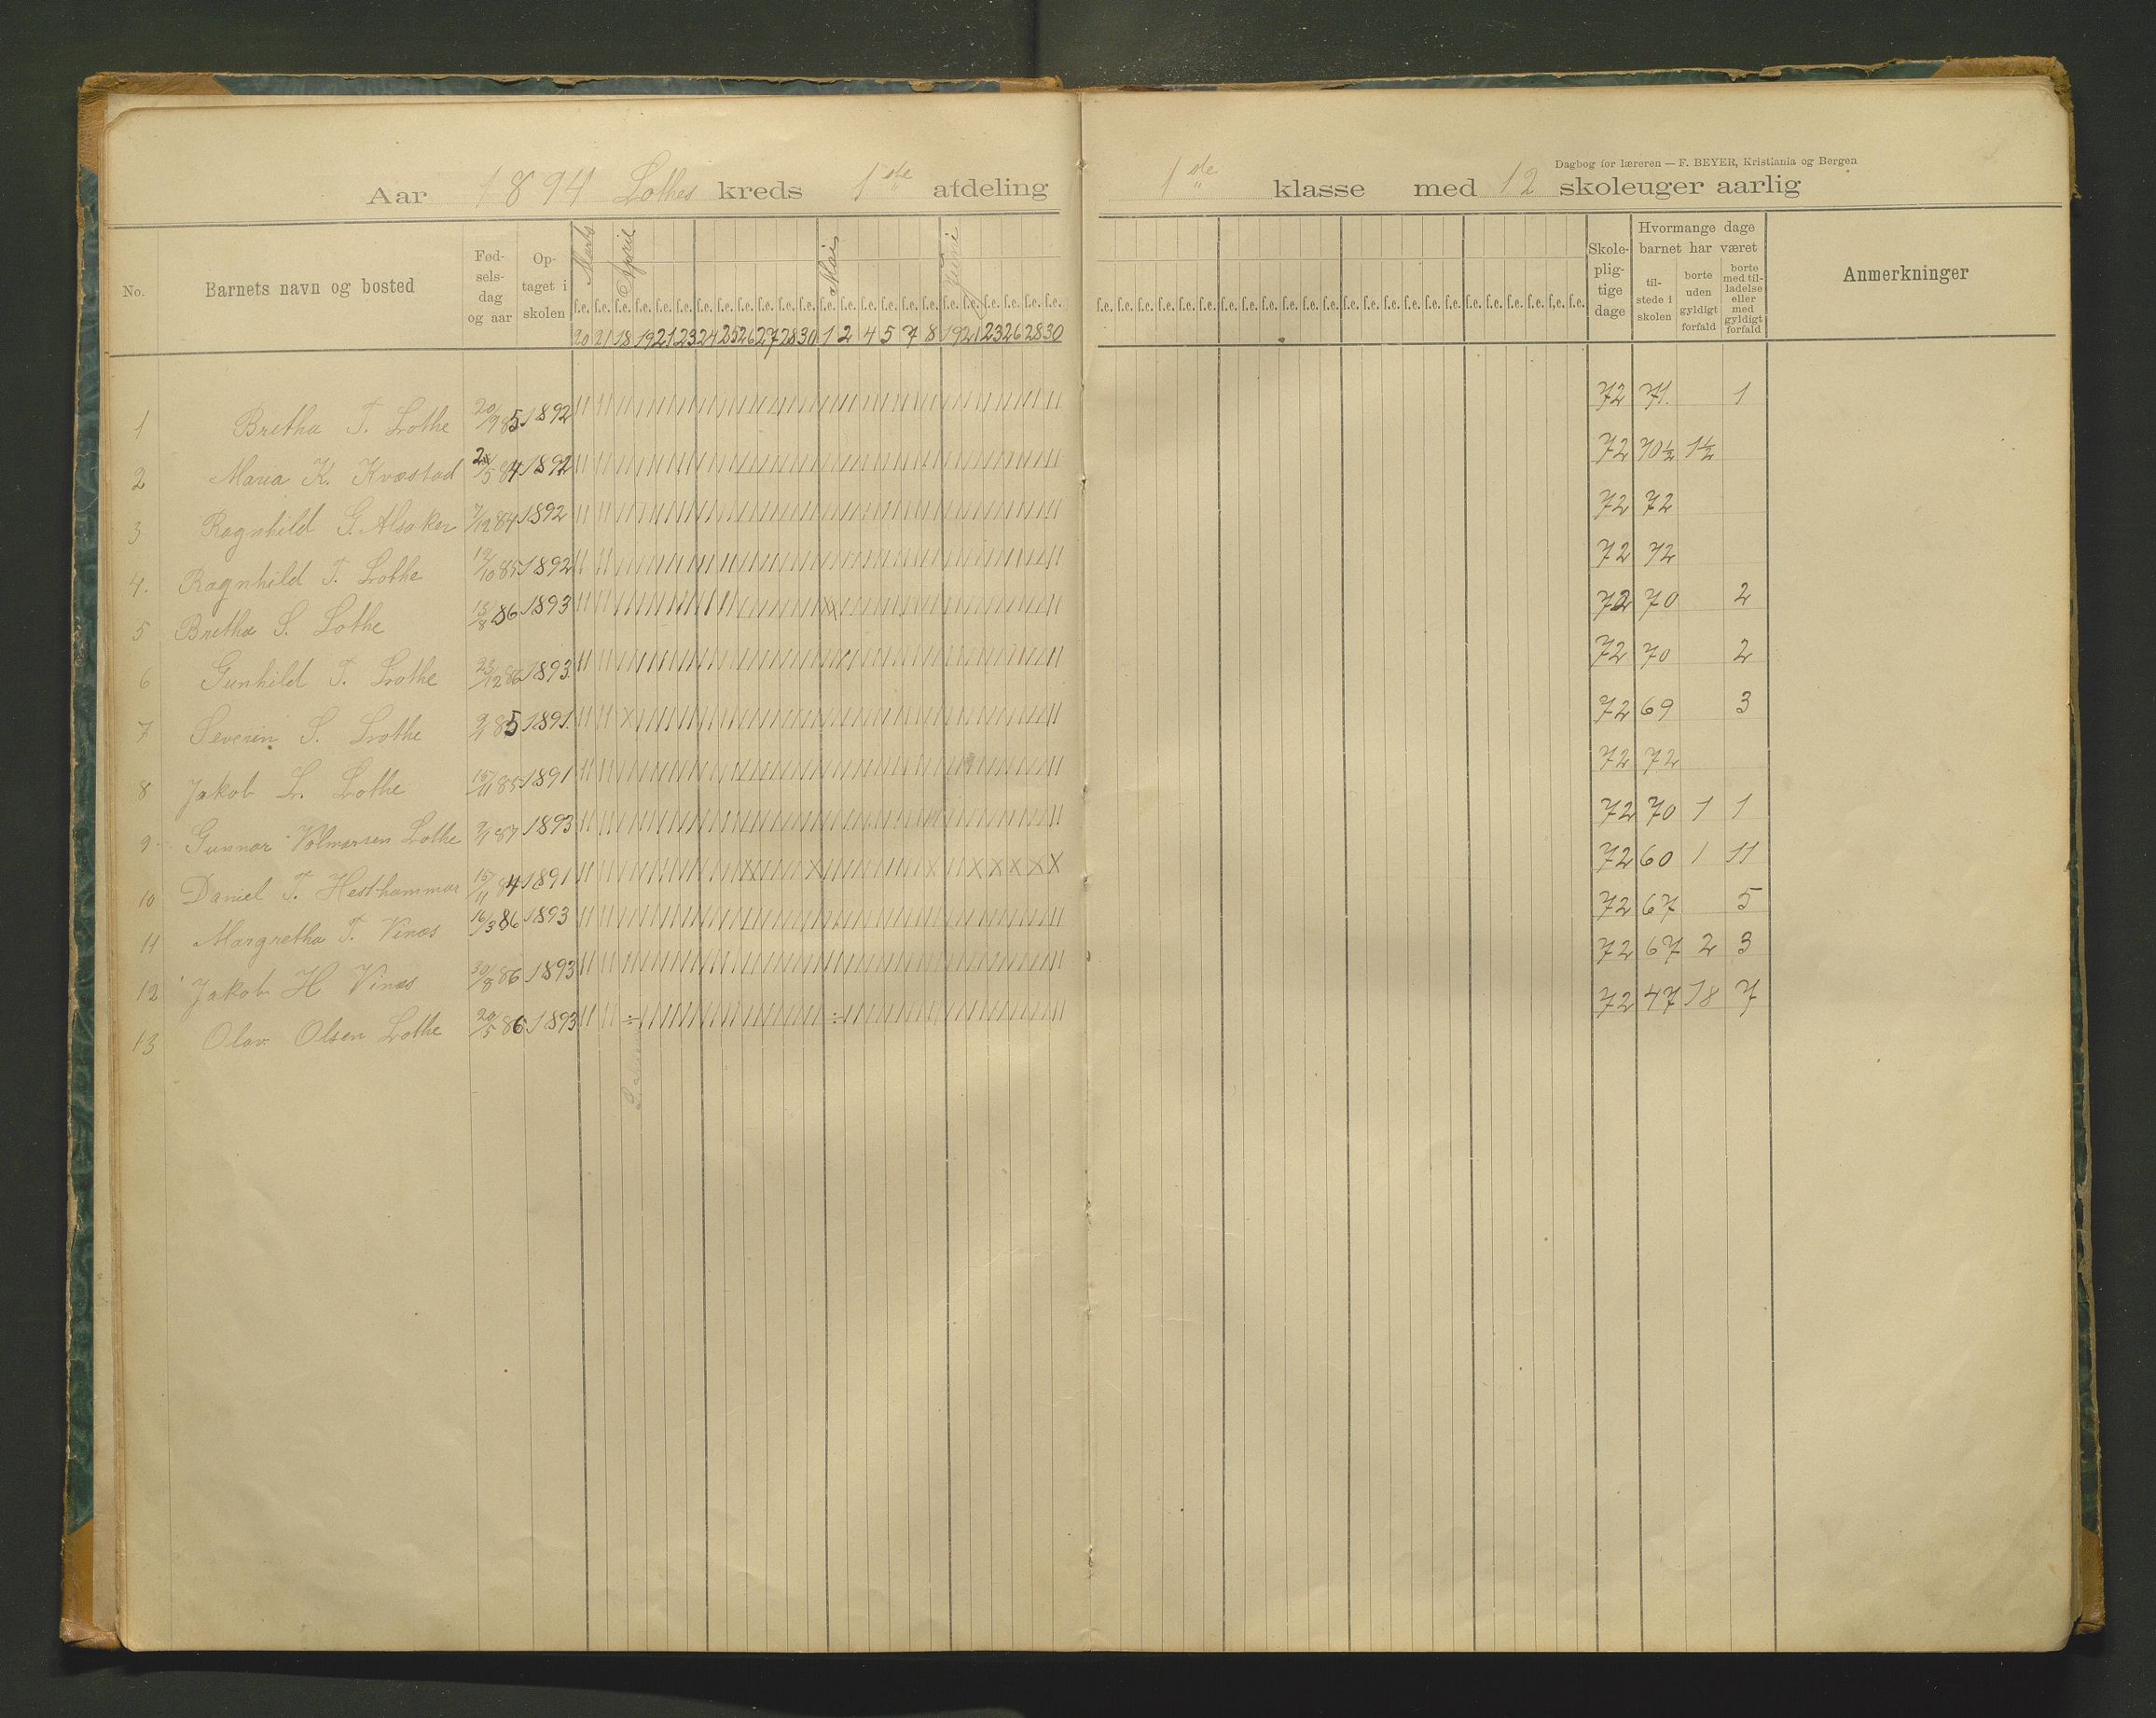 Dagbog for læreren — F. BEYER, Kristiania og Bergen
Aar 1894 Lothes kreds 1ste afdeling 1ste klasse med 12 skoleuger aarlig
No. Barnets navn og bosted Fødselsdag og aar Optaget i skolen Marts April Mai Juni Skolepligtige dage Hvormange dage barnet har været tilstede i skolen borte uden gyldigt forfald borte med tilladelse eller med gyldigt forfald Anmerkninger
f.e. f.e. f.e. f.e. f.e. f.e. f.e. f.e. f.e. f.e. f.e. f.e. f.e. f.e. f.e. f.e. f.e. f.e. f.e. f.e. f.e. f.e. f.e. f.e. f.e. f.e. f.e. f.e. f.e. f.e. f.e. f.e. f.e. f.e. f.e. f.e. f.e. f.e. f.e. f.e. f.e. f.e. f.e. f.e. f.e. f.e. f.e. f.e.
20 21 18 19 21 23 24 25 26 27 28 30 1 2 4 5 7 8 19 21 23 26 28 30
1 Bretha T. Lothe 20/9 85 1892 72 71. 1
2 Maria K. Kvæstad /5 84 1892 72 70½ 1½
3 Ragnhild G. Alsaker 7/12 84 1892 72 72
4. Ragnhild T. Lothe 12/10 85 1892 72 72
5 Bretha S. Lothe 15/8 86 1893 72 70 2
6 Gunhild T. Lothe 23/12 86 1893. 72 70 2
7 Severin S. Lothe 85 1891. 72 69 3
8 Jakob L. Lothe 15/11 85 1891 72 72
9 Gunnar Volmarsen Lothe 87 1893 72 70 1 1
10 Daniel T. Hesthammar 15/11 84 1891 72 60 1 11
11 Margretha T. Vinæs 16/3 86 1893 72 67 5
12 Jakob H Vinæs 30/8 86 1893 72 67 2 3
13 Olav Olsen Lothe 20/5 86 1893 72 47 18 7